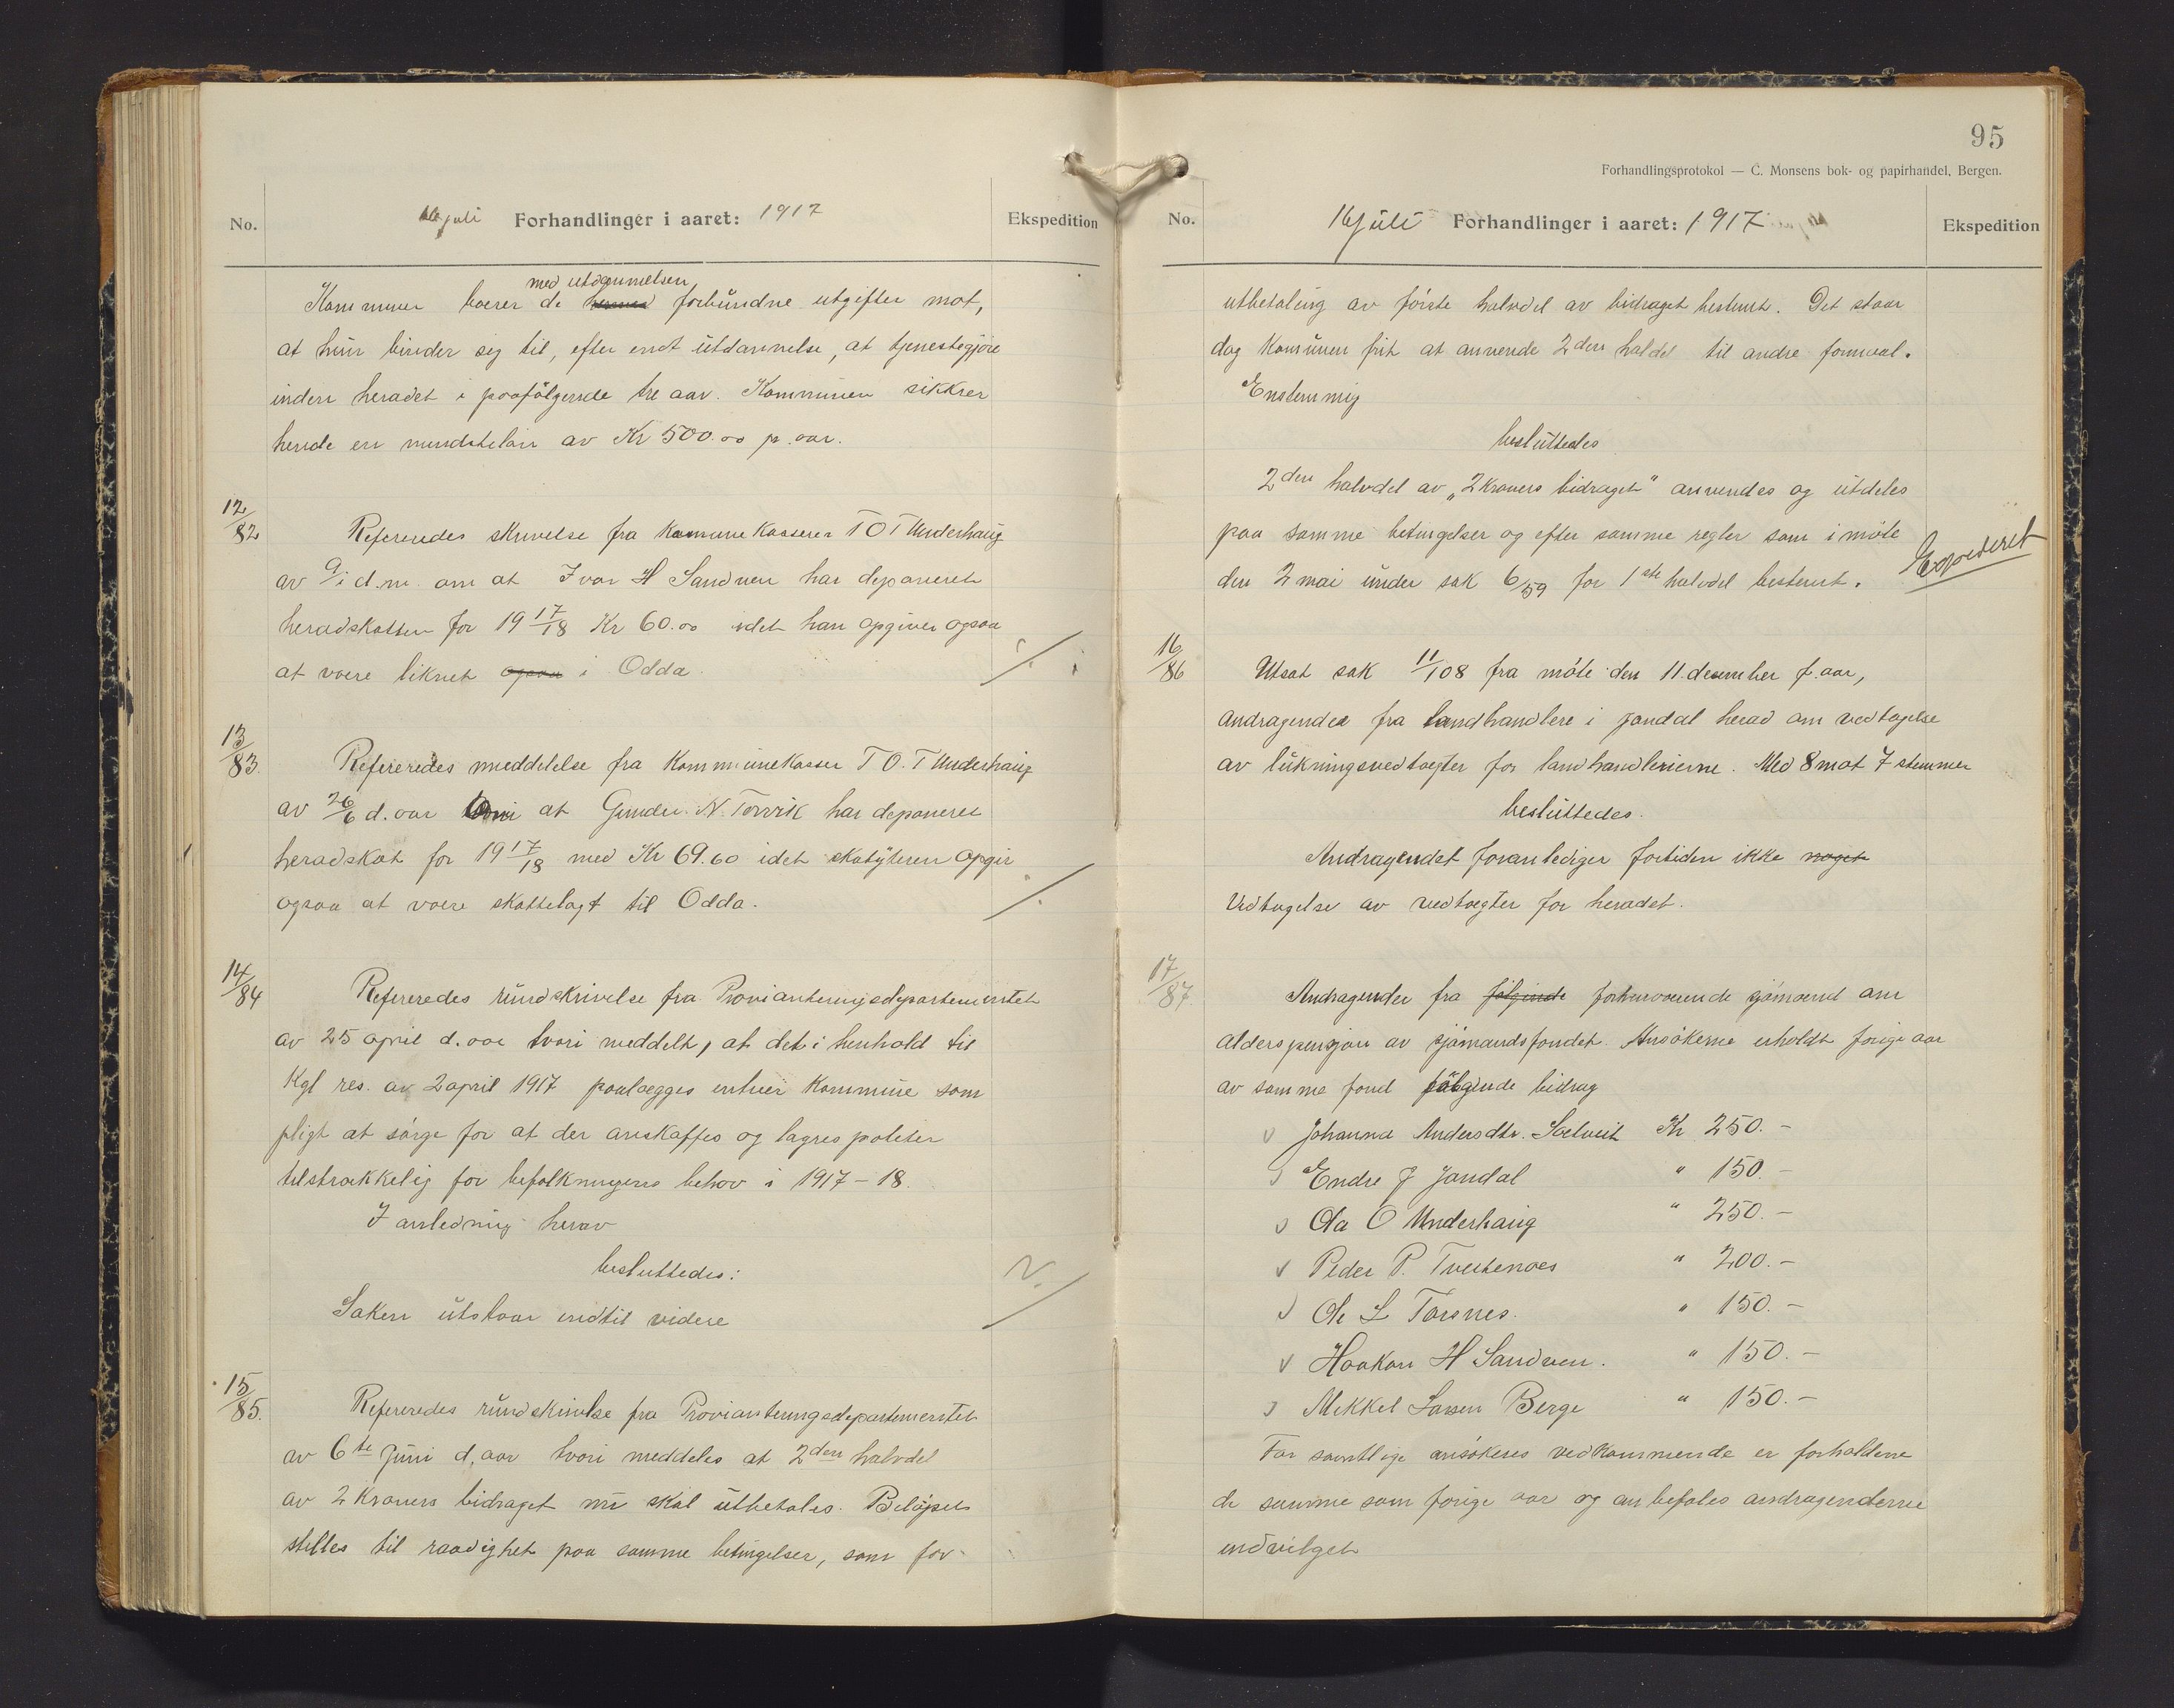 No. 16 juli Forhandlinger i aaret: 1917 Ekspedition
med utdannelsen
Kommunen bærer de forbundne utgifter mot,
at hun binder sig til, efter endt utdannelse, at tjenestegjøre
inden heradet i paafölgende tre aar. Kommunen sikkrer
hende en mindstelön av Kr 500.00 p. aar.
12/82 Refereredes skrivelse fra Kommunekasserer T O T Underhaug
av 9/ d.m. om at Ivar H Sandven har deponeret
heradskatten for 19 17/18 Kr 60.00 idet han opgiver ogsaa
at være liknet ogsaa i Odda.
13/83. Refereredes meddelelse fra Kommunekasser T O. T Underhaug
av 26/6 d. aar om at Gunder N. Torvik har deponeret
heradskat for 19 17/18 med Kr 69.60 idet skatyteren opgir
ogsaa at være skattelagt til Odda.
14/84 Refereredes rundskrivelse fra Provianteringsdepartementet
av 25 april d. aar hvori meddelt, at det i henhold til
Kgl res. av 2 april 1917 paalægges enhver Kommune som
pligt at sörge for at der anskaffes og lagres poteter
tilstrækkelig for befolkningens behov i 1917 – 18.
I anledning herav
besluttedes:
Saken utstaar indtil videre
15/85. Refereredes rundskrivelse fra Provianteringsdepartementet
av 6te Juni d. aar hvori meddeles at 2den halvdel
av 2 Kroners bidraget nu skal utbetales. Belöpet
stilles til raadighet paa samme betingelser, som for
95
Forhandlingsprotokol — C. Monsens bok- og papirhandel, Bergen.
No. 16 juli Forhandlinger i aaret: 1917 Ekspedition
utbetaling av förste halvdel av bidraget bestemt. Det staar
dog Komunen frit at anvende 2den haldel til andre formaal.
Enstemmig
besluttedes
2den halvdel av „2 Kroners bidraget" anvendes og utdeles
paa samme betingelser og efter samme regler som i möte
den 2 mai under sak 6/59 for 1ste halvdel bestemt. Expederet
16/86 Utsat sak 11/108 fra möte den 11. december f. aar,
andragendea fra landhandlere i Jondal herad om vedtagelse
av lukningsvedtægter for landhandlerierne. Med 8 mot 7 stemmer
besluttedes.
Andragendet foranlediger fortiden ikke noget
Vedtagelse av vedtægter for heradet.
17/87. Andragender fra fölgende forhenværende sjömænd om
alderspensjon av sjömandsfondet. Ansökerne erholdt forige aar
av samme fond fölgende bidrag
Johanna Andersdtr. Sælveit Kr 250. –
Endre J Jondal " 150. –
Ola O Underhaug " 250. –
Peder P. Tveitenæs " 200. –
Ole L Torsnes. " 150. –
Haakon H Sandven. " 150. –
Mikkel Larsen Berge " 150. –
For samtlige ansökeres vedkommende er forholdene
de samme som forige aar og anbefales andragenderne
indvilget